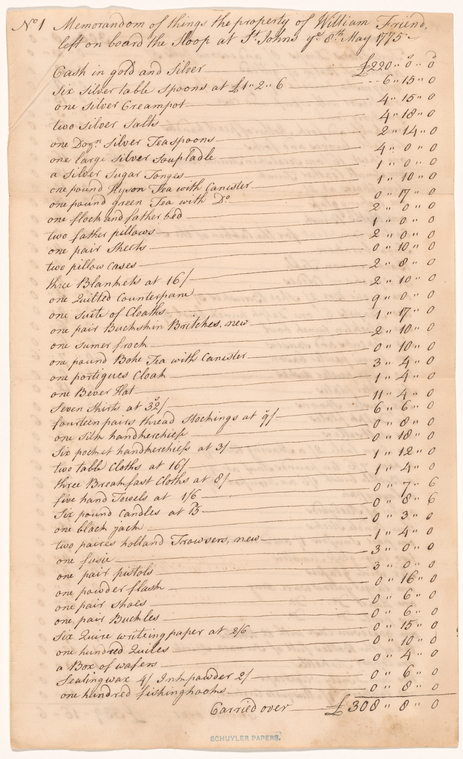 No 1 Memorandom of things the property of William Friend,
left on board the Sloop at St Johns ye 8th May 1775
Cash in gold and Silver £220 " 0 " 0
Six Silver table Spoons at £1 " 2 " 6 6 " 15 " 0
one Silver Creampot 4 " 15 " 0
two Silver Salts 4 " 18 " 0
one Dozn Silver Teaspoons 2 " 14 " 0
one large Silver Soup Ladle 4 " 0 " 0
a Silver Sugar Tonges 1 " 0 " 0
one pound Hyson Tea with Canester 1 " 10 " 0
one pound green Tea with Do 0 " 17 " 0
one flock and father bed 2 " 0 " 0
two father pillows 1 " 0 " 0
one pair Sheets 2 " 0 " 0
two pillow cases 0 " 10 " 0
three Blankets at 16/ 2 " 8 " 0
one Quilted Counterpane 2 " 10 " 0
one Suite of Cloaths 9 " 0 " 0
one pair Buckskin Britches, new 1 " 17 " 0
one sumer frock 2 " 10 " 0
one pound Bohe Tea with Canester 0 " 10 " 0
one portigues Cloak 3 " 4 " 0
one Bever Hat 1 " 4 " 0
Seven Shirts at 32/ 11 " 4 " 0
fourteen pairs thread Stockings at 9/ 6 " 6 " 0
one Silk handkerchief 0 " 8 " 0
Six pocket handkerchiefs at 3/ 0 " 18 " 0
two table Cloths at 16/ 1 " 12 " 0
three Breakfast Cloths at 8/ 1 " 4 " 0
five hand Towels at 1/6 0 " 7 " 6
Six pound Candles at 0 " 8 " 6
one black jack 0 " 3 " 0
two paires holland Trowsers, new 1 " 4 " 0
one fusie 3 " 0 " 0
one pair pistols 3 " 0 " 0
one powder flask 0 " 16 " 0
one pair Shoes 0 " 6 " 0
one pair Buckles 0 " 6 " 0
Six Quire writeing paper at 2/6 0 " 15 " 0
one hundred Quiles 0 " 10 " 0
a Box of wafers 0 " 4 " 0
Sealing wax 4/ Ink powder 2/ 0 " 6 " 0
one hundred fishinghooks 0 " 8 " 0
Carried over £308 " 8 " 0
SCHUYLER PAPERS.